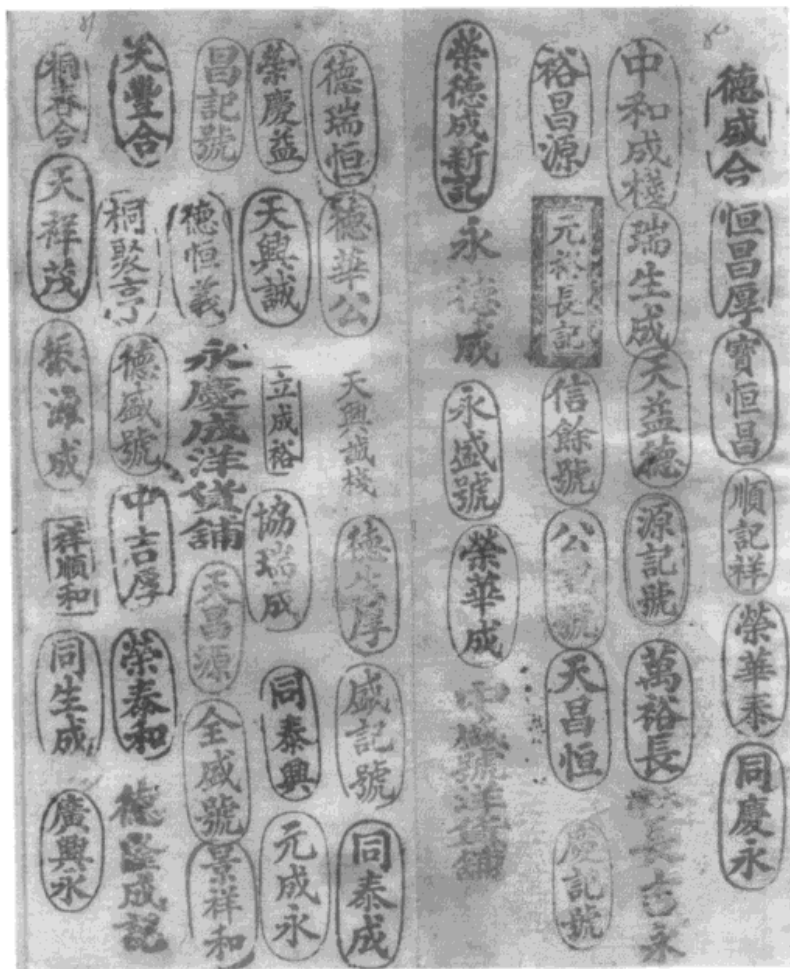 德成合
恒昌厚
寶恒昌
順記祥
榮華泰
同慶永
中和成棧
瑞生成
天益德
源記號
萬裕長
長吉永
裕昌源
元裕長記
信餘號
公號
天昌恒
慶記號
榮德成新記
永德成
永盛號
榮華成
盛號洋貨舖
德瑞恒
德華公
天興誠棧
德生厚
盛記號
同泰成
榮慶益
天興誠
立成裕
協瑞成
同泰興
元成永
昌記號
德恒義
永慶成洋貨舖
天昌源
全盛號
景祥和
天豐合
桐聚亨
德盛號
中吉厚
榮泰和
德隆成記
桐春合
天祥茂
振源成
祥順和
同生成
廣興永